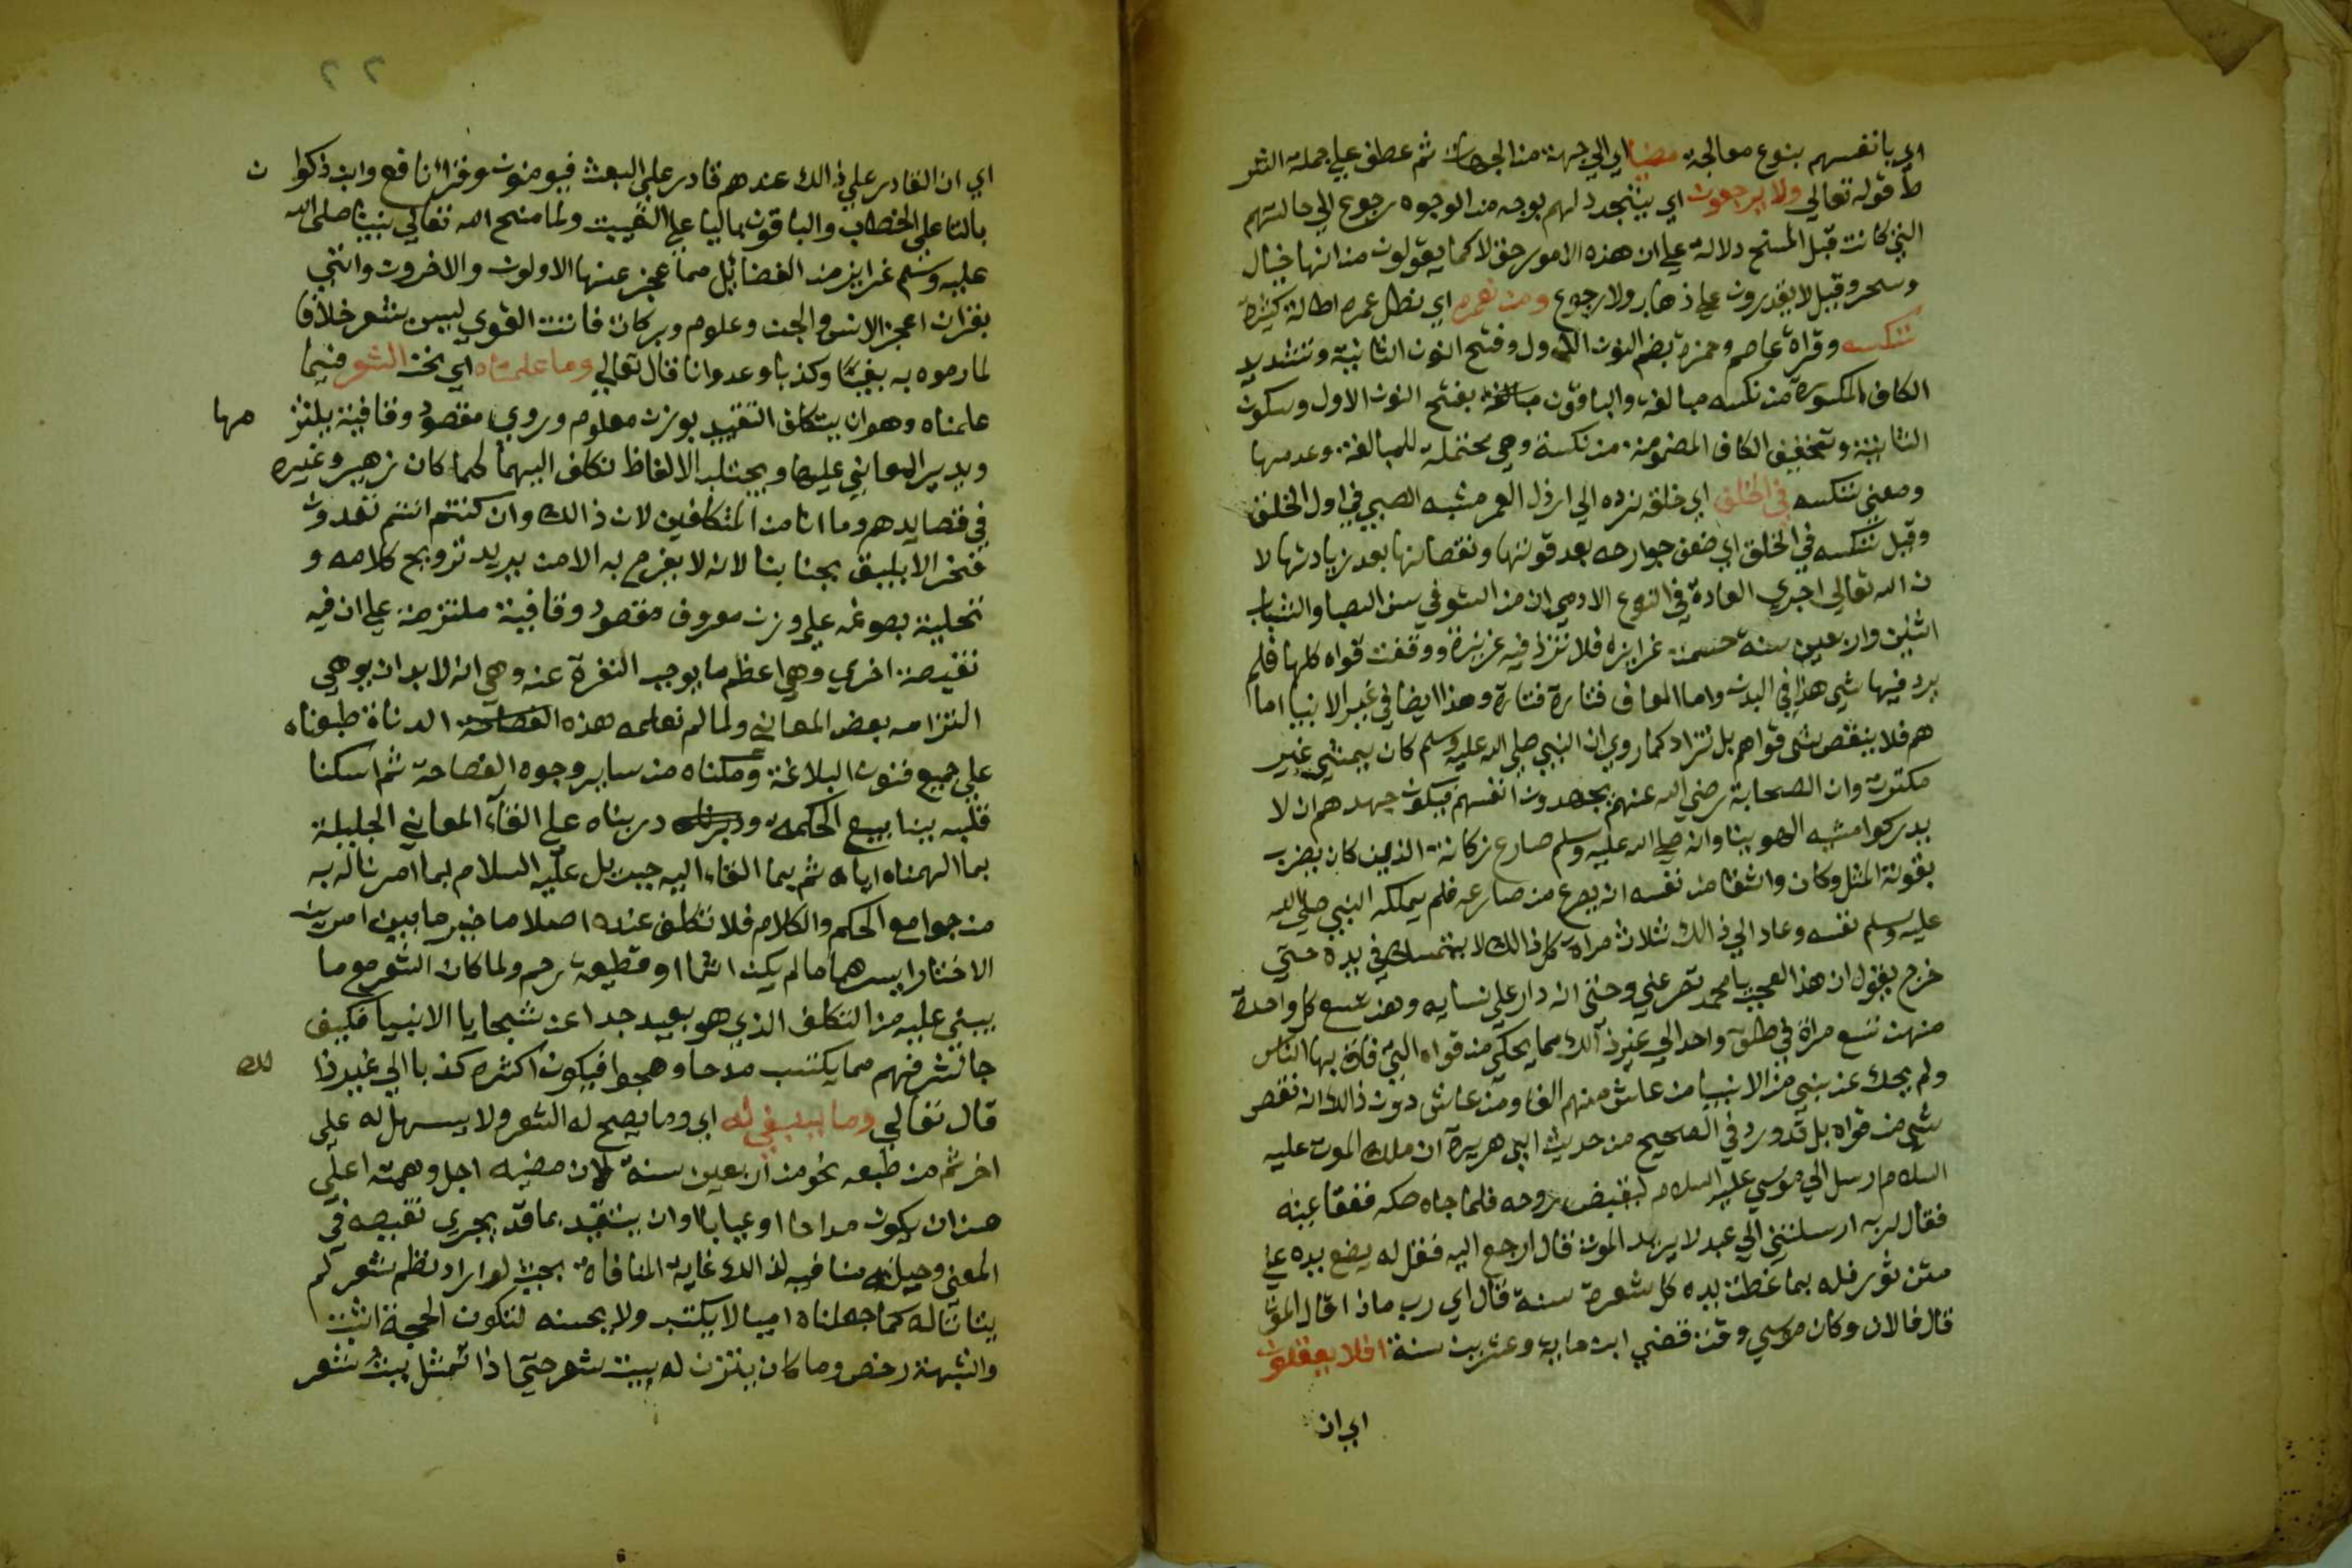 اي بانفسهم بنوع معالجة مضيا اي الي جهة من الجهات ثم عطف علي جملة الشر
ط قوله تعالي ولا يرجعون اي يتجدد لهم بوجه من الوجوه رجوع الي حالتهم
التي كانت قبل المسخ دلالة علي ان هذه الامور حق لا كما يقولون من انها خيال
وسحر وقيل لا يقدرون علي ذهاب ولا رجوع ومن نعمره اي نطل عمره اطالة كثيرة
ننكسه وقراة عاصم وحمزة بضم النون الاول وفتح النون الثانية وتشديد
الكاف المكسورة من نكسه مبالغة والباقون بفتح النون الاول وسكون
الثانية وتخفيف الكاف المضمومة من نكسة وهي محتملة للمبالغة وعدمها
ومعني ننكسه في الخلق اي خلقه نرده الي ارذل العمر مشبه الصبي في اول الخلق
وقيل ننكسه في الخلق اي ضعف جوارحه بعد قوتها ونقصانها بعد زيادتها لا
ن الله تعالي اجري العادة في النوع الادمي ان من السوفي سن الصبا والشباب
اثنين واربعين سنة حسمت غرايزه فلا تزد فيه غريزة ووقفت قواه كلها فلم
يرد فيها شي هذا في البدن واما المعاف فتارة فتارة وهذا ايضا في غير الانبيا اما
هم فلا ينقص شي قواهم بل تزاد كما روي ان النبي صلي الله عليه وسلم كان يمشي غير
مكترث وان الصحابة رضي الله عنهم يجهدون انفسهم فيكون جهدهم ان لا
يدركوا مشيه الهوينا وانه صلي الله عليه وسلم صارع زكانة الذي كان يضرب
بقوته المثل وكان واثقا من نفسه انه يصرع من صارعه فلم يملكه النبي صلي الله
عليه وسلم نفسه وعاد الي ذالك ثلاث مراة كل ذالك لا يتمسك في يده حتي
خرج يقول ان هذا العجب يا محمد تصرعني وحتي انه دار علي نسايه وهن تسع كل واحدة
منهن تسع مرة في طلق واحد الي غير ذالك مما يحكي من قواه التي فاق بها الناس
ولم يحك عن نبي من الانبيا من عاش منهم الفا ومن عاش دون ذالك انه نقص
شي من قواه بل قد ورد في الصحيح من حديث ابي هريرة ان ملك الموت عليه
السلام ارسل الي موسي عليه السلام ليقبض روحه فلما جاه صكه ففقا عينه
فقال لربه ارسلتني الي عبد لا يريد الموت قال ارجع اليه فقل له يضع يده علي
متن ثور فله بما غطت يده كل شعرة سنة قال اي رب ماذا قال الموت
قال فالان وكان موسي وقت قضي ابن ماية وعشرين سنة افلا يعقلون
اي ان
٢٢
اي ان القادر علي ذالك عندهم قادر علي البعث فيومنون وقرا نافع وابن ذكوا ن
بالتا علي الخطاب والباقون باليا علي الغيبت ولما منح الله تعالي نبينا صلي الله
عليه وسلم غرايز من الفضايل مما عجز عنها الاولون والاخرون واتي
بقران اعجز الانس والجن وعلوم وبركات فاتت القوي ليس بشعر خلافا
لما رموه به بغيا وكذبا وعدوانا قال تعالي وما علمناه اي نحن الشعر فيما
علمناه وهو ان يتكلف التقيد بوزن معلوم وروي مقصود وقافية يلتز مها
ويدير المعاني عليها ويجتلب الالفاظ تكلف اليهما كما كان زهير وغيره
في قصايدهم وما انا من المتكلفين لان ذالك وان كنتم انتم تعدون
فخر الا يليق بجنابنا لانه لا يفرح به الا من يريد ترويج كلامه و
تحلية بصوغه علي وزن معروف مقصود وقافية ملتزمة علي ان فيه
نقيصة اخري وهي اعظم ما يوجب النفرة عنه وهي انه لا بد ان يوهي
التزامه بعض المعاني ولما لم نعلمه هذه الدناة طبعناه
علي جميع فنون البلاغة ومكناه من ساير وجوه الفصاحة ثم اسكنا
قلبه ينابيع الحكمة و دربناه علي القاء المعاني الجليلة
بما الهمناه اياه ثم بما القاه اليه جبريل عليه السلام بما امرنا له به
من جوامع الحكم والكلام فلا تكلف عنده اصلا ما خير ما بين امرين
الا اختار ايسرهما ما لم يكن اثما او قطيعة رحم ولما كان الشعر مع ما
يبني عليه من التكلف الذي هو بعيد جدا عن شجايا الانبيا فكيف
جا شرفهم مما يكتسب مدحا وهجوا فيكون اكثره كذبا الي غير ذا لك
قال تعالي وما ينبغي له اي وما يصح له الشعر ولا يسهل له علي
اخر ثم من طبعه نحو من اربعين سنة لان مضيه اجل وهمته اعلي
من ان يكون مداحا او عيابا او ان يتقيد بما قد يجري نقيصه في
المعني وحيلته منافيه لذالك غاية المنافاة بحيث لو اراد نظم شعر لم
يتات له كما جعلناه اميا لا يكتب ولا يحسنه لتكون الحجة اثبت
والشبهة رخص وما كان يتزن له بيت شعر حتي اذا تمثل بيت شعر